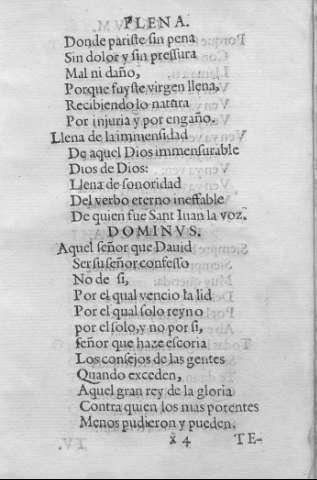 PLENA.
Donde pariste sin pena
Sin dolor y sin pressura
Mal ni daño,
Porque fuyste virgen llena,
Recibiendo lo natura
Por injuria y por engaño.
Llena de la immensidad
De aquel Dios immensurable
Dios de Dios:
Llena de sonoridad
Del verbo eterno ineffable
De quien fue Sant Iuan la voz.
DOMINVS.
Aquel señor que Dauid
Ser su señor confesso
No de si,
Por el qual vencio la lid
Por el qual solo reyno
por el solo, y no por si,
señor que haze escoria
Los consejos de las gentes
Quando exceden,
Aquel gran rey de la gloria
Contra quien los mas potentes
Menos pudieron y pueden.
x 4 TE-